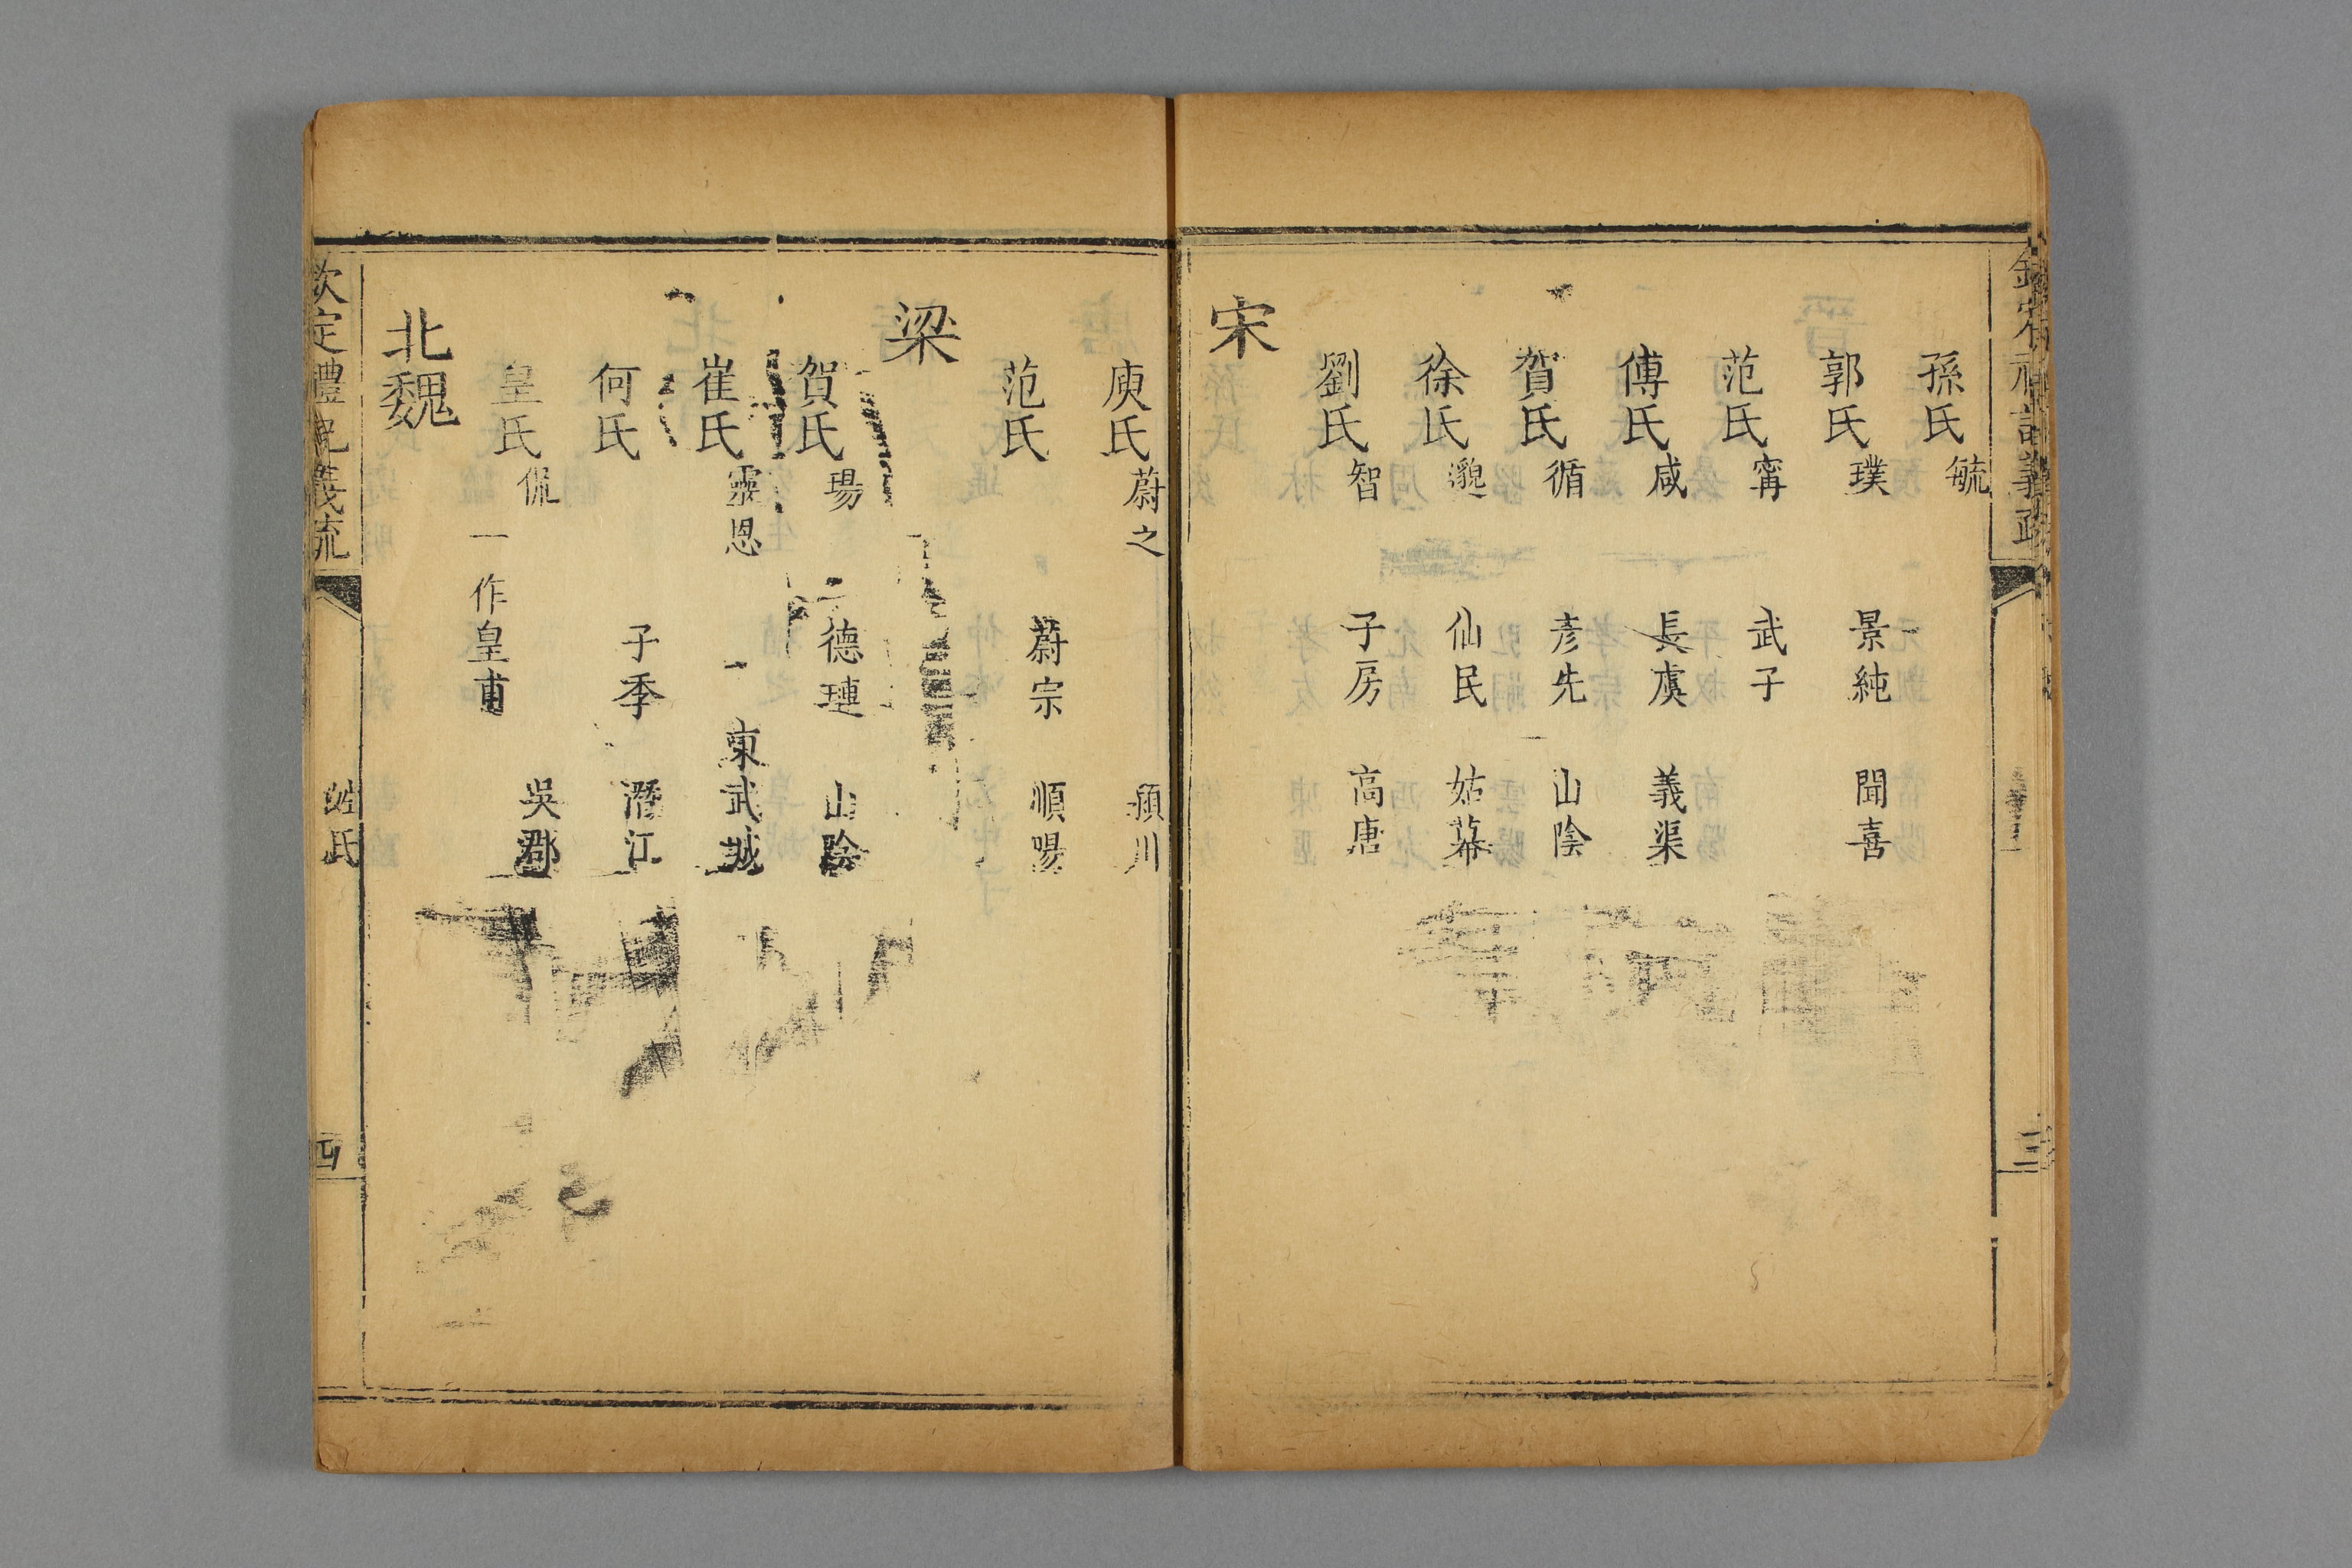 孫氏 毓
郭氏 璞 景純 聞喜
范氏 寗 武子
傅氏 咸 長虞 義渠
賀氏 循 彥先 山陰
徐氏 邈 仙民 姑幕
劉氏 智 子房 高唐
宋
庾氏 蔚之 潁川
范氏 蔚宗 順陽
梁
賀氏 瑒 德璉 山陰
崔氏 靈恩 東武城
何氏 子季 灊江
皇氏 侃 吳郡
一作皇甫
北魏
欽定禮記義疏 姓氏 四